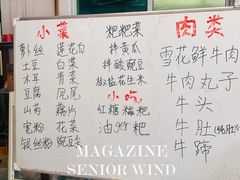 小菜
虾丝 莲花白
土豆 白菜
木耳 青菜
豆腐 凤尾
山药 藕片
宽粉 花菜
银丝粉 豌豆尖
粑粑菜
拌黄瓜
拌酸豌豆
椒盐花生米
小吃
红糖糍粑
油炸粑
肉类
雪花鲜牛肉
牛肉丸子
牛头
牛肚
牛蹄
MAGAZINE
SENIOR WIND